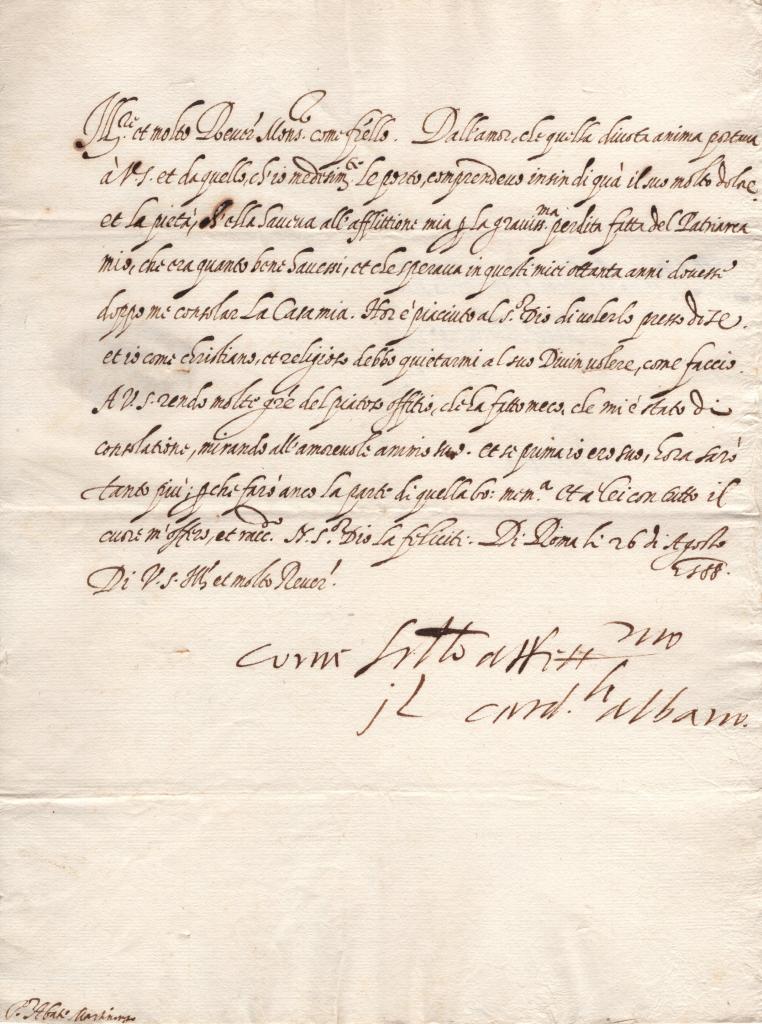 Ill.re et molto Rever.r Mons.r come fr͂ello. Dall'amor, che quella divota anima portava
à V.S. et da quello, ch'io medesim.te Le porto, comprendevo insin di quà il suo molto dolore
et la pietà, ch'ella haveva all'afflittione mia ꝑ la graviss.ma perdita fatta del Patriarca
mio, che era quanto bene havessi, et che sperava in questi miei ottanta anni dovesse
doppo me consolar La Casa mia. Hor è piaciuto al S.or Dio di volerlo presso di Se.
et io come christiano, et religioso debbo quietarmi al suo Divin volere, come faccio.
A V.S. rendo molte gr͂e del piatoso offitio, che ha fatto meco, che mi è stato di
consolatione, mirando all'amorevole animo suo. et se prima io ero suo, hora sarò
tanto più; ꝑche farò anco la parte di quella bo: mem.a et a lei con tutto il
cuore m'offero, et racc.o N.S.or Dio la feliciti. Di Roma li 26 di Agosto
1588.
Di V.S. Ill.e et molto Rever.r
come fr͂llo affett.mo
il card.le albano.
S.r Abate Martinengo